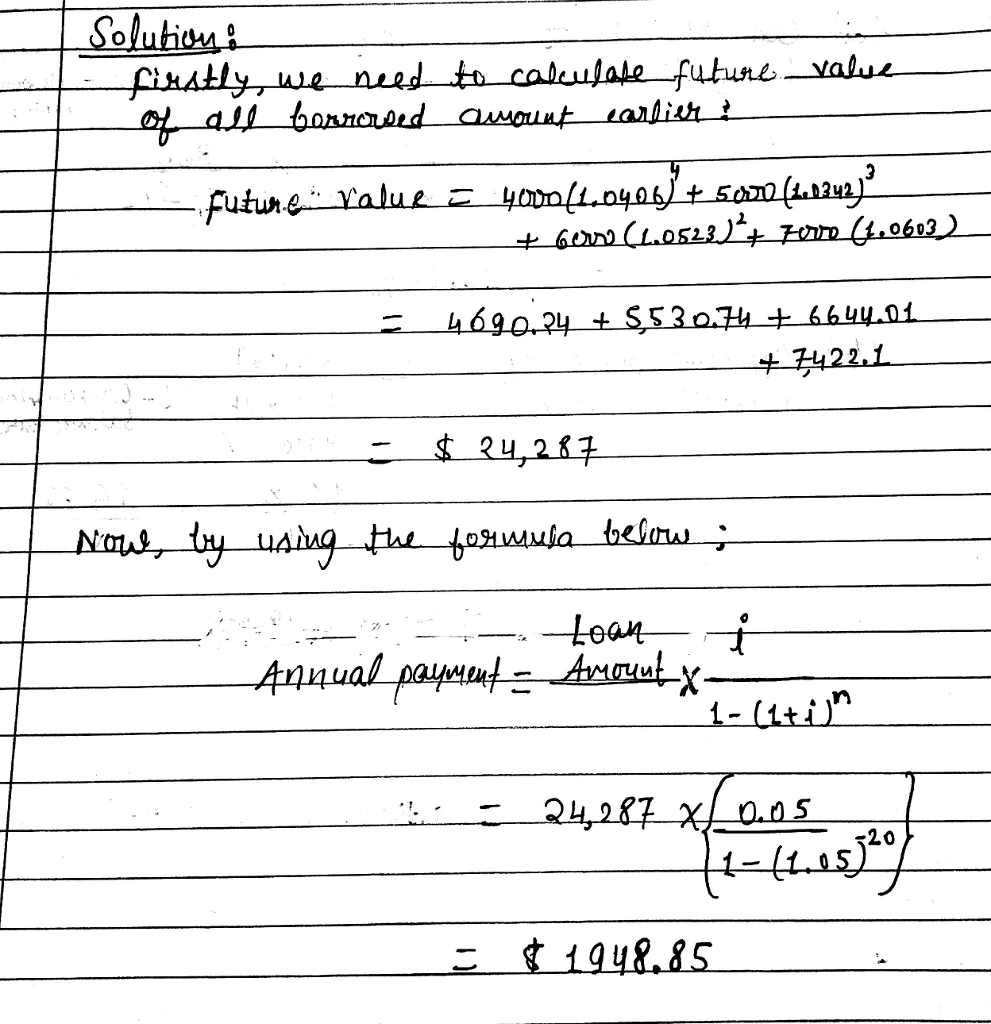 Solution:
Firstly, we need to calculate future value
of all borrowed amount earlier:
future value = 4000(1.0406)⁴ + 5000(1.0342)³
+ 6000(1.0523)² + 7000(1.0603)
= 4690.24 + 5,530.74 + 6644.01
+ 7,422.1
= $ 24,287
Now, by using the formula below;
Annual payment = Loan Amount × i / 1-(1+i)ⁿ
= 24,287 × { 0.05 / 1-(1.05)⁻²⁰ }
= $ 1948.85